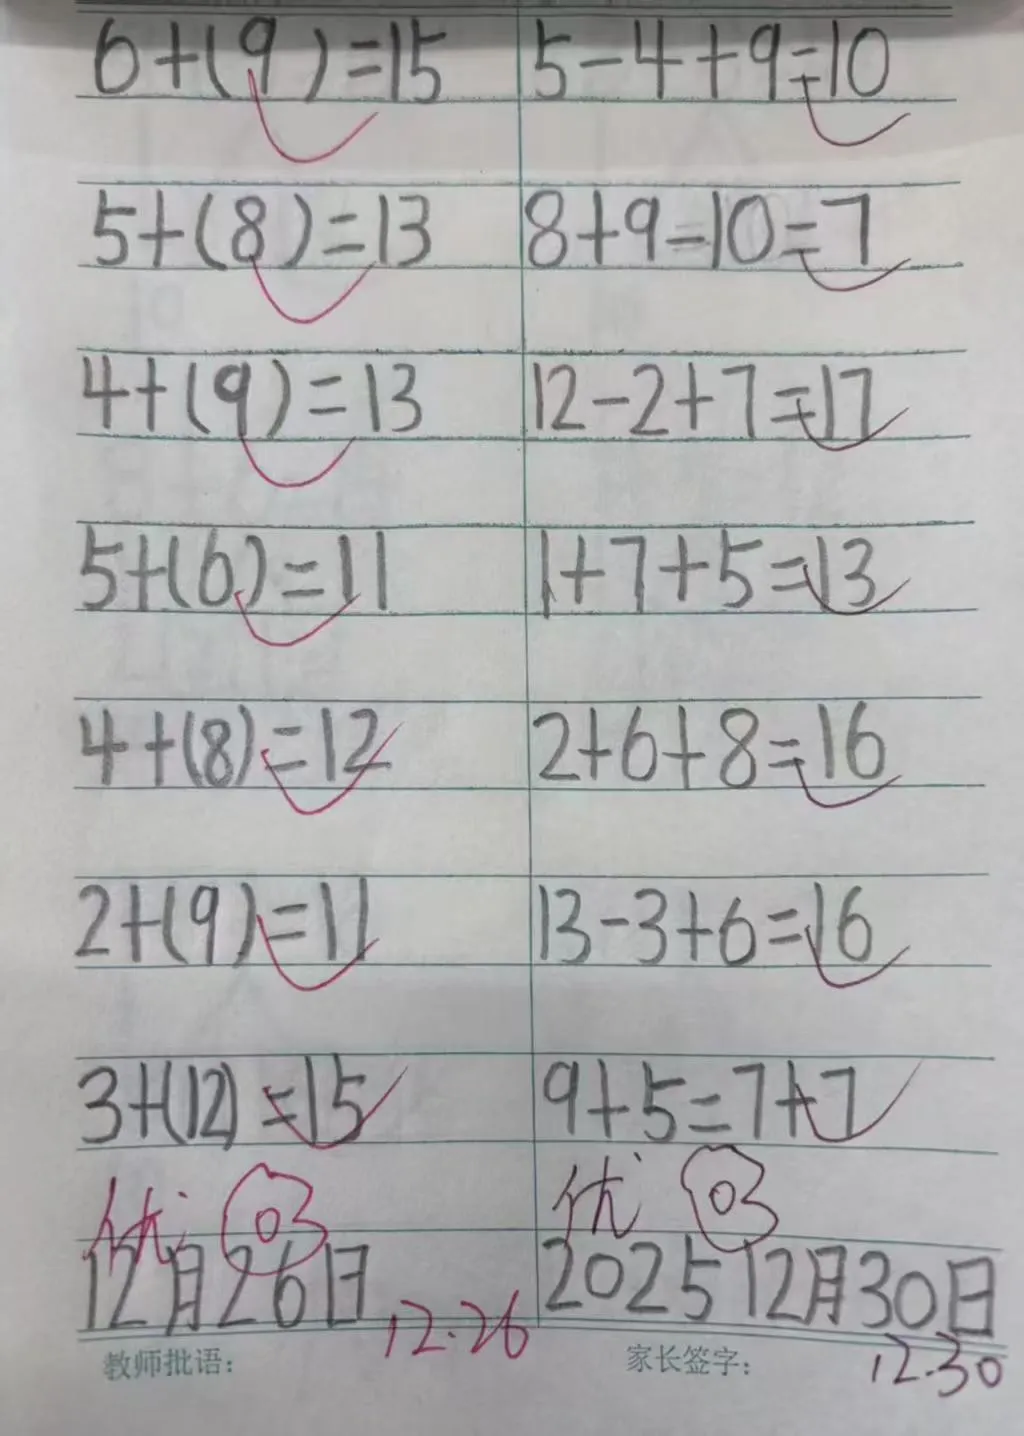 6+(9)=15
5+(8)=13
4+(9)=13
5+(6)=11
4+(8)=12
2+(9)=11
3+(12)=15
优 03
12月26日
12.26
教师批语：
5-4+9=10
8+9-10=7
12-2+7=17
1+7+5=13
2+6+8=16
13-3+6=16
9+5=7+7
优 03
2025 12月30日
家长签字：
12.30